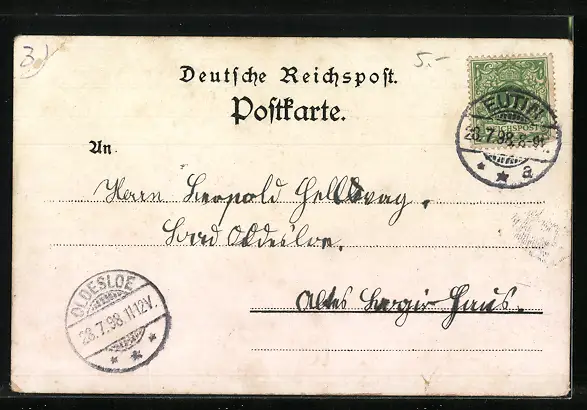 3)
5.-
Deutsche Reichspost.
Postkarte.
An
EUTIN
28.7.98.8-9V.
a
REICHSPOST
Herrn Leopold Hellwag.
Bad Oldesloe.
Altes Logir Haus.
OLDESLOE
28.7.98 11-12V.